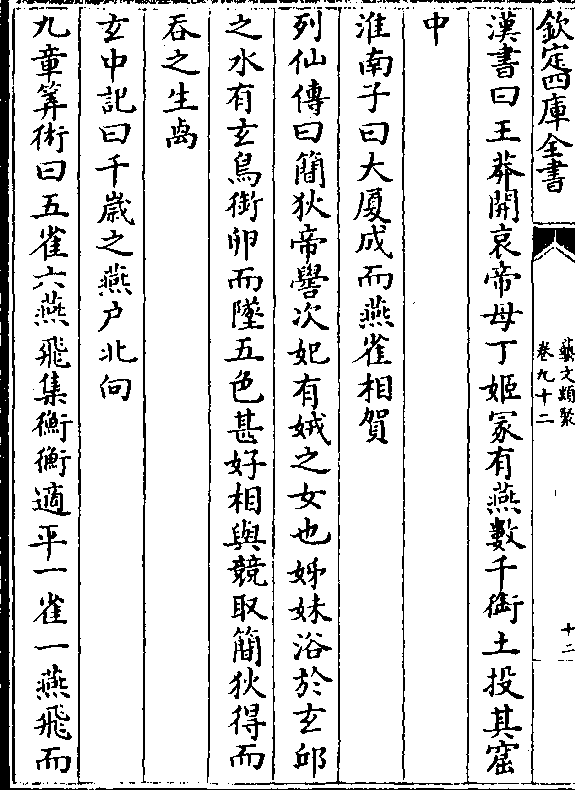 欽定四庫全書
藝文類聚
卷九十二
十二
漢書曰王莽開哀帝母丁姬冢有燕數千銜土投其窟
中
淮南子曰大厦成而燕雀相賀
列仙傳曰簡狄帝嚳次妃有娀之女也姊妹浴於玄邱
之水有玄鳥銜卵而墜五色甚好相與競取簡狄得而
吞之生卨
玄中記曰千歲之燕户北向
九章筭術曰五雀六燕飛集衡衡適平一雀一燕飛而